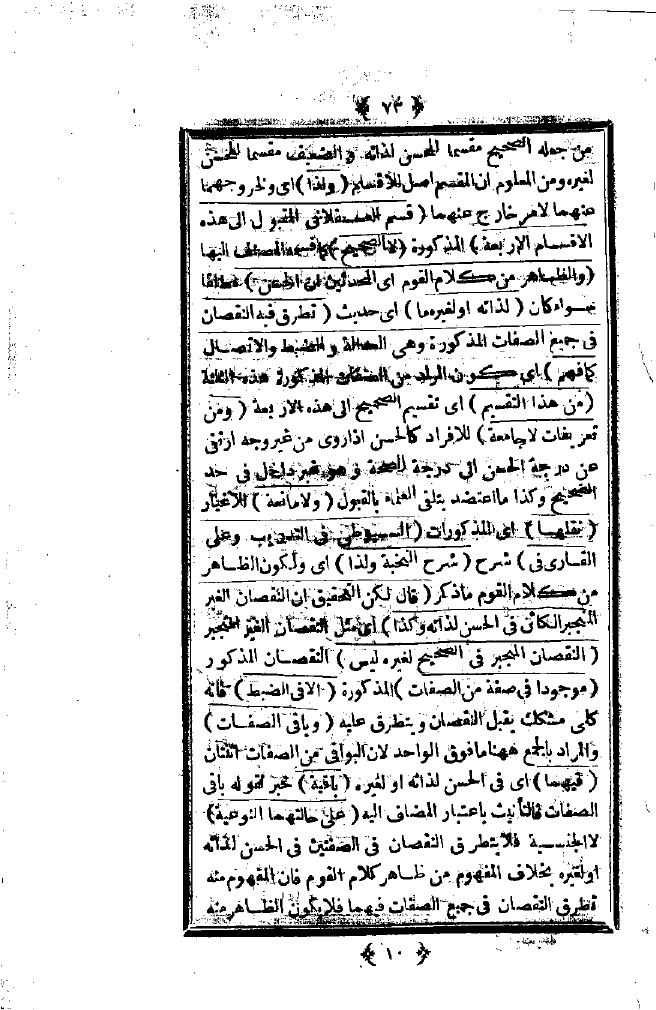 ﴿ ٧٣ ﴾
من جملة الصحيح مقسما للحسن لذاته والضعيف مقسما للحسن
لغيره ومن المعلوم ان المقسم اصل للاقسام ( ولذا ) اى ولخروجهما
عنهما لامر خارج عنهما ( قسم العسقلانى المقبول الى هذه
الاقسام الاربعة ) المذكورة ( لا الصحيح ) كما قسمه المصنف اليها
( والظاهر من كلام القوم اى المحدثين ان الحسن ) مطلقا
سواء كان ( لذاته او لغيره ما ) اى حديث ( تطرق فيه النقصان
فى جميع الصفات المذكورة وهى العدالة والضبط والاتصال
كما فهم ) اى كون المراد من الصفات المذكورة هذه الثلثة
( من هذا التقسيم ) اى تقسيم الصحيح الى هذه الاربعة ( ومن
تعريفات لا جامعة ) للافراد كالحسن اذا روى من غير وجه ارتقى
عن درجة الحسن الى درجة الصحة وهو غير داخل فى حد
الصحيح وكذا ما اعتضد بتلقى العلماء بالقبول ( ولا مانعة ) للاغيار
( نقلها ) اى المذكورات ( السيوطى فى التدريب وعلى
القارى فى ) شرح ( شرح النخبة ولذا ) اى ولكون الظاهر
من كلام القوم ما ذكر ( قال لكن التحقيق ان النقصان الغير
المنجبر الكائن فى الحسن لذاته وكذا ) اى مثل النقصان الغير المنجبر
( النقصان المنجبر فى الصحيح لغيره ليس ) النقصان المذكور
( موجودا فى صفة من الصفات ) المذكورة ( الا فى الضبط ) فانه
كلى مشكك يقبل النقصان ويتطرق عليه ( وباقى الصفات )
والمراد بالجمع ههنا ما فوق الواحد لان البواقى من الصفات اثنتان
( فيهما ) اى فى الحسن لذاته او لغيره ( باقية ) خبر لقوله باقى
الصفات فالتأنيث باعتبار المضاف اليه ( على حالتهما النوعية )
لا الجنسية فلا يتطرق النقصان فى الصفتين فى الحسن لذاته
او لغيره بخلاف المفهوم من ظاهر كلام القوم فان المفهوم منه
تطرق النقصان فى جميع الصفات فيهما فلا يكون الظاهر منه
﴿ ١٠ ﴾